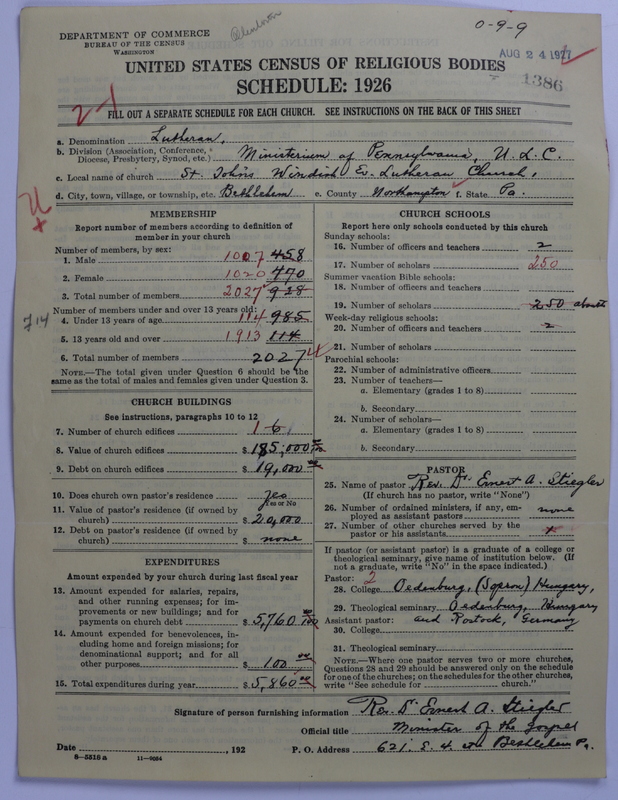 DEPARTMENT OF COMMERCE
BUREAU OF THE CENSUS
WASHINGTON
0-9-9
AUG 24 1927
1386
UNITED STATES CENSUS OF RELIGIOUS BODIES
SCHEDULE: 1926
2-1
FILL OUT A SEPARATE SCHEDULE FOR EACH CHURCH. SEE INSTRUCTIONS ON THE BACK OF THIS SHEET
a. Denomination Lutheran,
b. Division (Association, Conference, Diocese, Presbytery, Synod, etc.) Ministerium of Pennsylvania, U. L. C.
c. Local name of church St. John's Windish Ev. Lutheran Church,
d. City, town, village, or township, etc. Bethlehem e. County Northampton f. State Pa.
MEMBERSHIP
Report number of members according to definition of
member in your church
Number of members, by sex:
1. Male 1007 458
2. Female 1020 470
3. Total number of members 2027 928
Number of members under and over 13 years old:
714
4. Under 13 years of age 114 985
5. 13 years old and over 1913 114
6. Total number of members 2027
NOTE.—The total given under Question 6 should be the
same as the total of males and females given under Question 3.
CHURCH BUILDINGS
See instructions, paragraphs 10 to 12
7. Number of church edifices 1
8. Value of church edifices $ 185,000
9. Debt on church edifices $ 19,000
10. Does church own pastor's residence yes
Yes or No
11. Value of pastor's residence (if owned by
church) $ 20,000
12. Debt on pastor's residence (if owned by
church) $ none
EXPENDITURES
Amount expended by your church during last fiscal year
13. Amount expended for salaries, repairs,
and other running expenses; for im-
provements or new buildings; and for
payments on church debt $ 5,760
14. Amount expended for benevolences, in-
cluding home and foreign missions; for
denominational support; and for all
other purposes $ 100
15. Total expenditures during year $ 5,860
CHURCH SCHOOLS
Report here only schools conducted by this church
Sunday schools:
16. Number of officers and teachers 2
17. Number of scholars 250
Summer vacation Bible schools:
18. Number of officers and teachers
19. Number of scholars 250 about
Week-day religious schools:
20. Number of officers and teachers 2
21. Number of scholars
Parochial schools:
22. Number of administrative officers
23. Number of teachers—
a. Elementary (grades 1 to 8)
b. Secondary
24. Number of scholars—
a. Elementary (grades 1 to 8)
b. Secondary
PASTOR
25. Name of pastor Rev. Dr. Ernest A. Stiegler
(If church has no pastor, write "None")
26. Number of ordained ministers, if any, em-
ployed as assistant pastors none
27. Number of other churches served by the
pastor or his assistants
If pastor (or assistant pastor) is a graduate of a college or
theological seminary, give name of institution below. (If
not a graduate, write "No" in the space indicated.)
Pastor: 2
28. College Oedenburg, (Sopron) Hungary,
29. Theological seminary Oedenburg, Hungary
Assistant pastor: and Rostock, Germany
30. College
31. Theological seminary
NOTE.—Where one pastor serves two or more churches,
Questions 28 and 29 should be answered only on the schedule
for one of the churches; on the schedules for the other churches,
write "See schedule for church."
Signature of person furnishing information Rev. Dr. Ernest A. Stiegler
Official title Minister of the Gospel
Date , 192
P. O. Address 621. E. 4. str Bethlehem Pa.
8-5516 a 11-9094